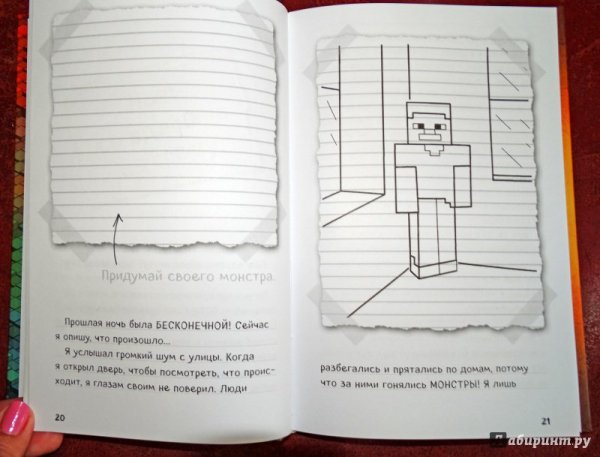 Придумай своего монстра.
Прошлая ночь была БЕСКОНЕЧНОЙ! Сейчас
я опишу, что произошло...
Я услышал громкий шум с улицы. Когда
я открыл дверь, чтобы посмотреть, что проис-
ходит, я глазам своим не поверил. Люди
20
разбегались и прятались по домам, потому
что за ними гонялись МОНСТРЫ! Я лишь
21
Лабиринт.ру